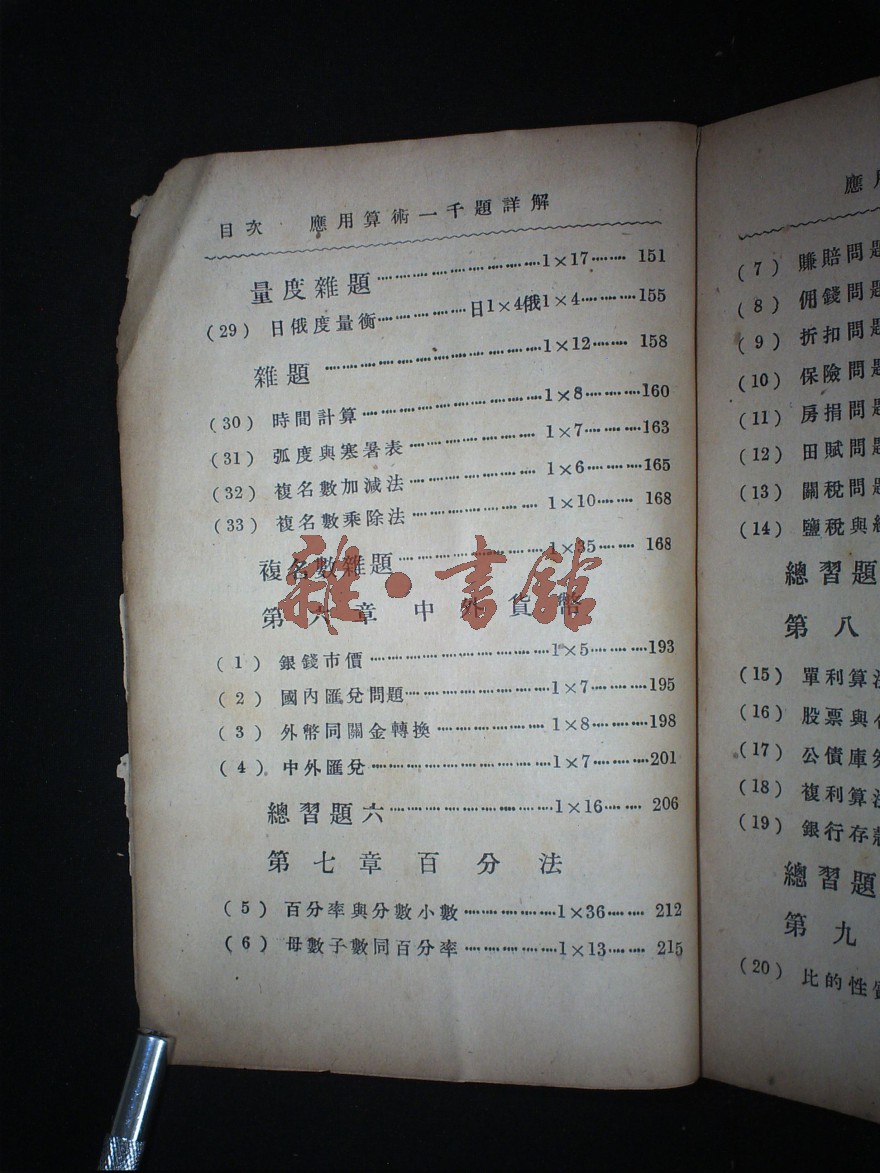 目次 應用算術一千題詳解
量度雜題…………………………1×17…… 151
(29) 日俄度量衡……………日1×4俄1×4………155
雜題 ………………………………1×12…… 158
(30) 時間計算…………………………1×8………160
(31) 弧度與寒暑表………………… 1×7………163
(32) 複名數加減法………………… 1×6………165
(33) 複名數乘除法………………… 1×10…… 168
複名數雜題……………………1×35…… 168
雜·書館
第六章 中外貨幣
(1) 銀錢市價…………………………1×5………193
(2) 國內匯兌問題……………………1×7………195
(3) 外幣同關金轉換……………… 1×8………198
(4) 中外匯兌…………………………1×7………201
總習題六………………………1×16…… 206
第七章 百分法
(5) 百分率與分數小數……………1×36…… 212
(6) 母數子數同百分率……………1×13…… 215
應
(7) 賺賠問題
(8) 佣錢問題
(9) 折扣問題
(10) 保險問題
(11) 房捐問題
(12) 田賦問題
(13) 關稅問題
(14) 鹽稅與
總習題
第八
(15) 單利算
(16) 股票與
(17) 公債庫
(18) 複利算
(19) 銀行存
總習題
第九
(20) 比的性